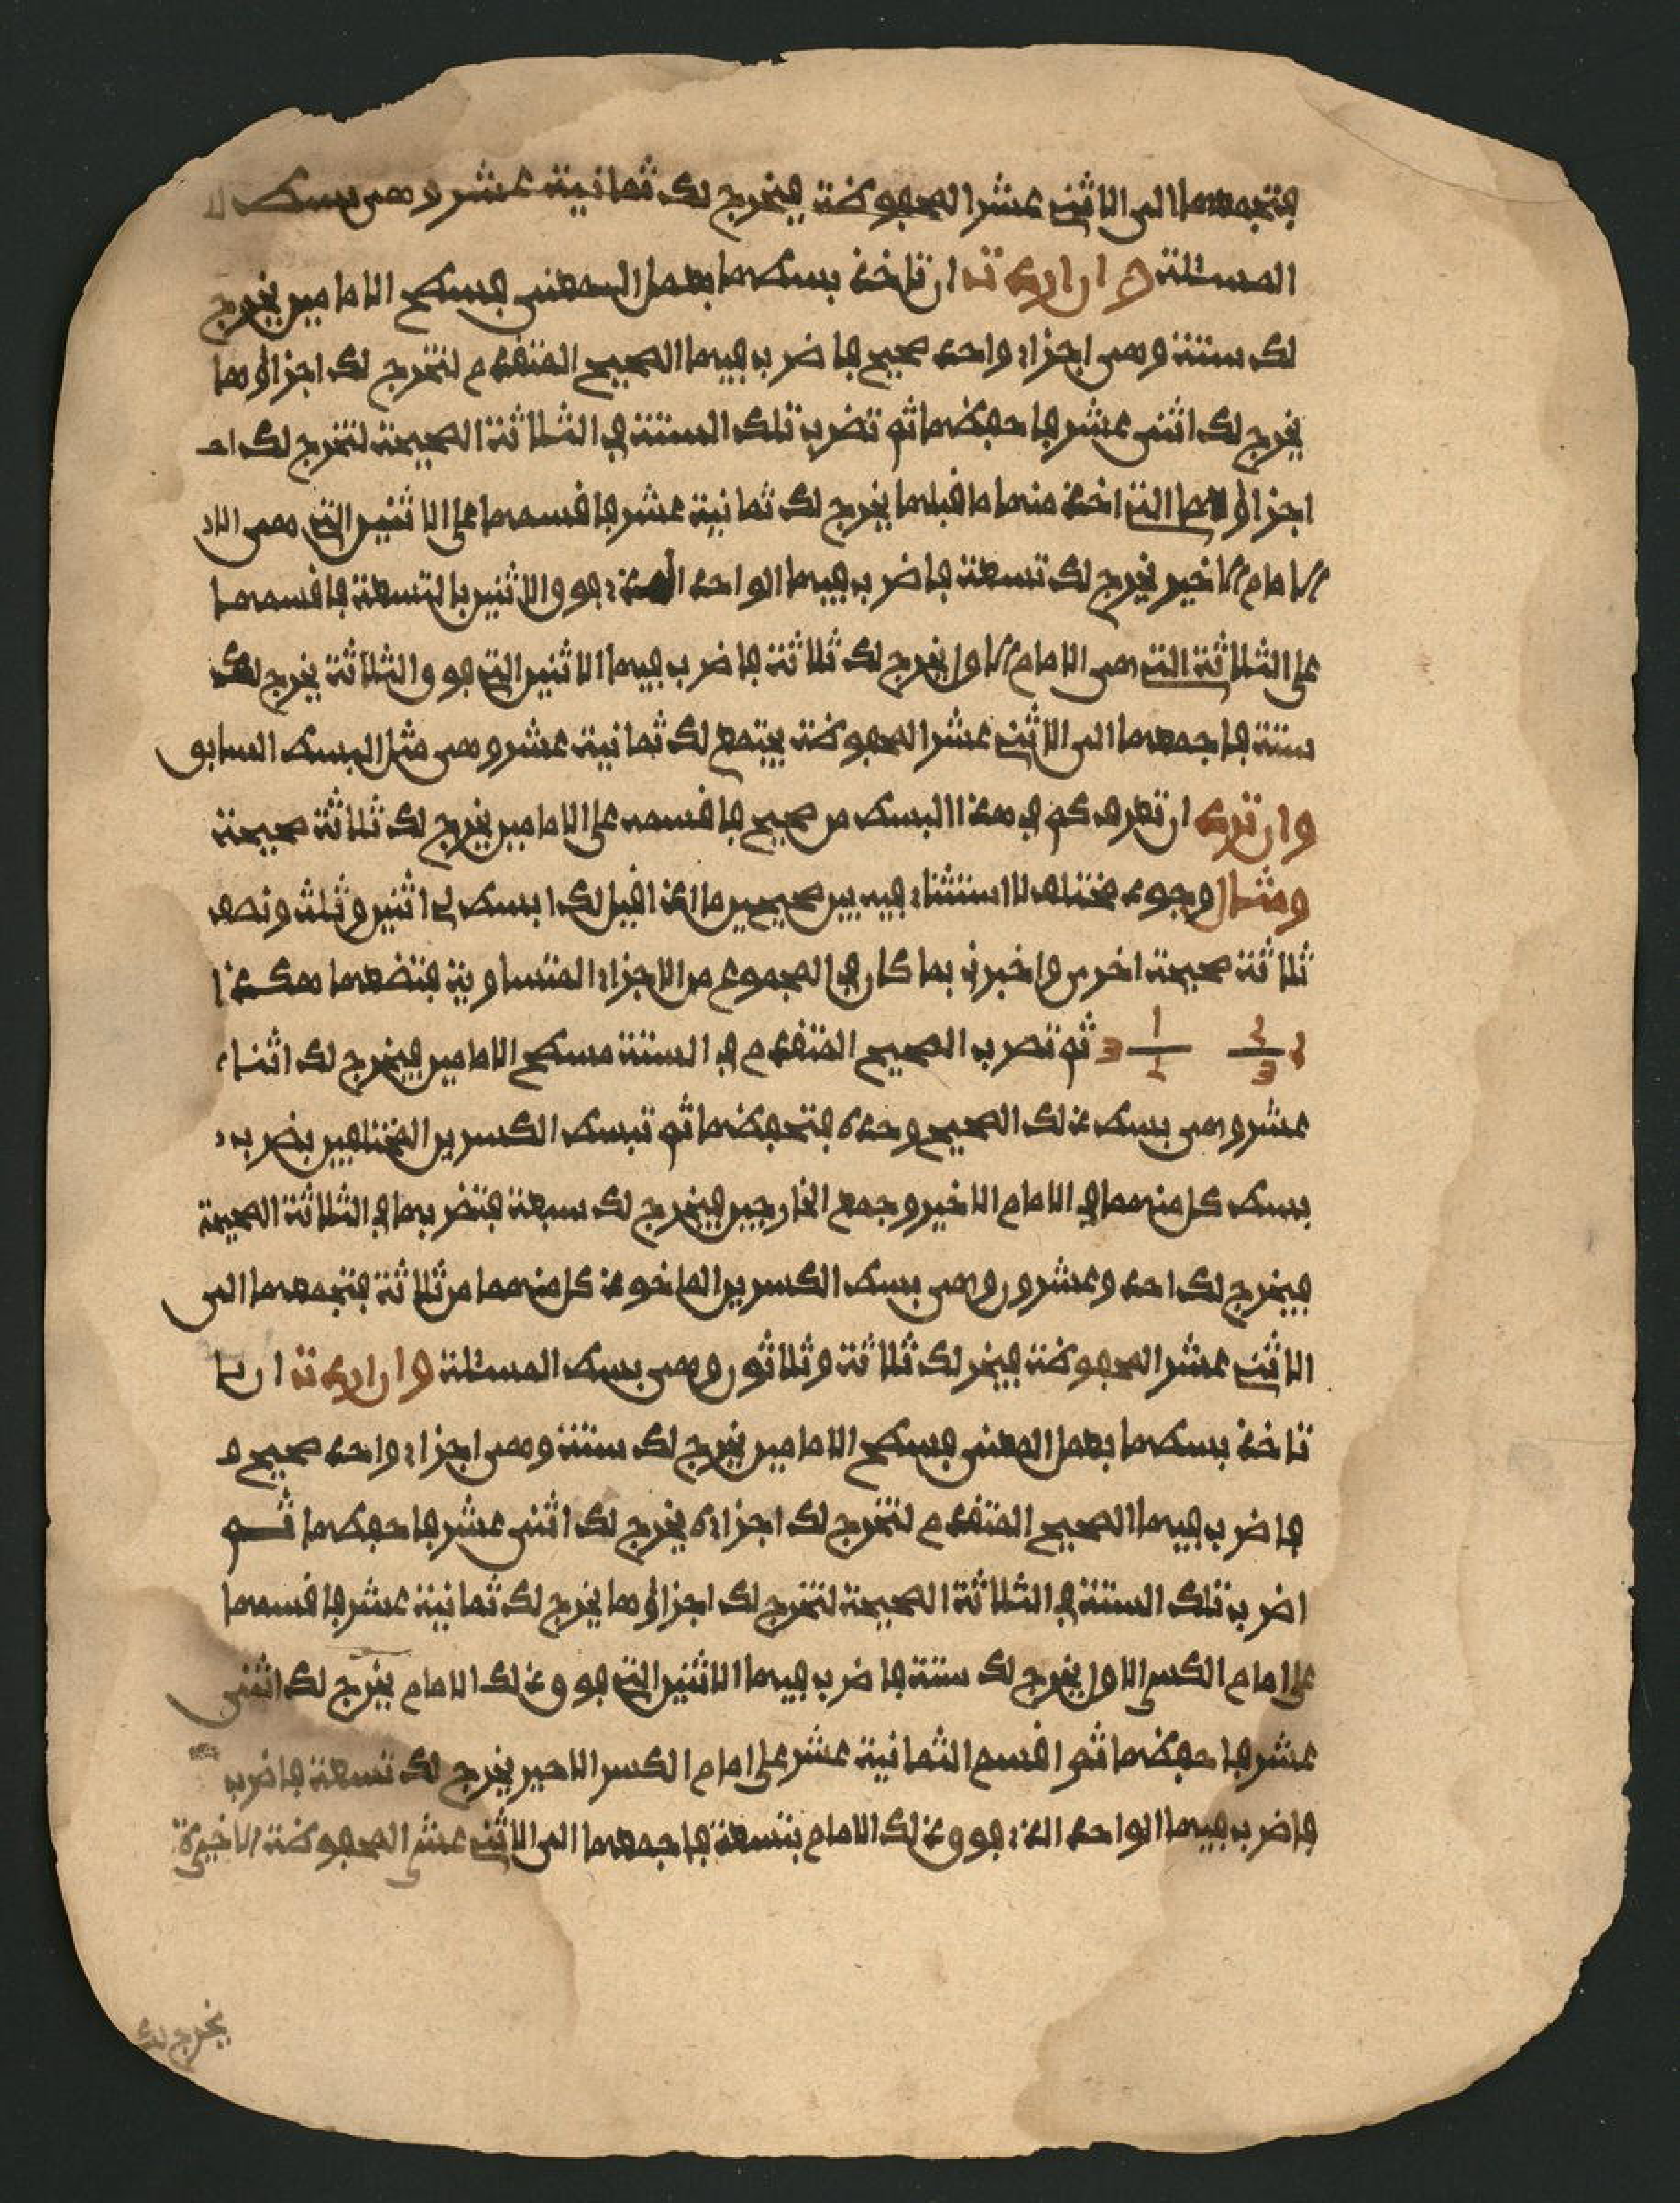 فتجمعها الى الاثني عشر المحفوظة فيخرج لك ثمانية عشر وهي بسط
المسئلة وان اردت ان تاخذ بسطها بعمل المعنى فسطح الامامين يخرج
لك ستة وهي اجزاء واحد صحيح فاضرب فيها الصحيح المتقدم لتخرج لك اجزاؤها
يخرج لك اثنى عشر فاحفظها ثم تضرب تلك الستة في الثلاثة الصحيحة لتخرج لك
اجزاؤها التي اخذ منها ما قبلها يخرج لك ثمانية عشر فاقسمها على الاثنين التي هي
الامام الاخير يخرج لك تسعة فاضرب فيها الواحد الذي فوق الاثنين بالتسعة فاقسمها
على الثلاثة التي هي الامام الاول يخرج لك ثلاثة فاضرب فيها الاثنين التي فوق الثلاثة يخرج لك
ستة فاجمعها الى الاثني عشر المحفوظة يجتمع لك ثمانية عشر وهي مثل البسط السابق
وان ترد ان تعرف كم في هذا البسط من صحيح فاقسمه على الامامين يخرج لك ثلاثة صحيحة
ومثال وجود مختلف لا استثناء فيه بين صحيحين ما اذا قيل لك ابسط لي اثنين وثلث ونصف
ثلاثة صحيحة اخرى واخبرني بما كان في المجموع من الاجزاء المتساوية فتضعها هكذا
2 2/3 1/2 3 ثم تضرب الصحيح المتقدم في الستة مسطح الامامين فيخرج لك اثنا
عشر وهي بسط ذلك الصحيح وحده فتحفظها ثم تبسط الكسرين المختلفين بضرب
بسط كل منهما في الامام الاخير وجمع الخارجين فيخرج لك سبعة فتضربها في الثلاثة الصحيحة
فيخرج لك احد وعشرون وهي بسط الكسرين الماخوذ كل منهما من ثلاثة فتجمعها الى
الاثني عشر المحفوظة فيخر لك ثلاثة وثلاثون وهي بسط المسئلة وان اردت ان
تاخذ بسطها بعمل المعنى فسطح الامامين يخرج لك ستة وهي اجزاء واحد صحيح
فاضرب فيها الصحيح المتقدم لتخرج لك اجزاءه يخرج لك اثنى عشر فاحفظها ثم
اضرب تلك الستة في الثلاثة الصحيحة لتخرج لك اجزاؤها يخرج لك ثمانية عشر فاقسمها
على امام الكسر الاول يخرج لك ستة فاضرب فيها الاثنين التي فوق ذلك الامام يخرج لك اثنى
عشر فاحفظها ثم اقسم الثمانية عشر على امام الكسر الاخير يخرج لك تسعة فاضرب
فاضرب فيها الواحد الذي فوق ذلك الامام بتسعة فاجمعها الى الاثني عشر المحفوظة الاخيرة
يخرج لك